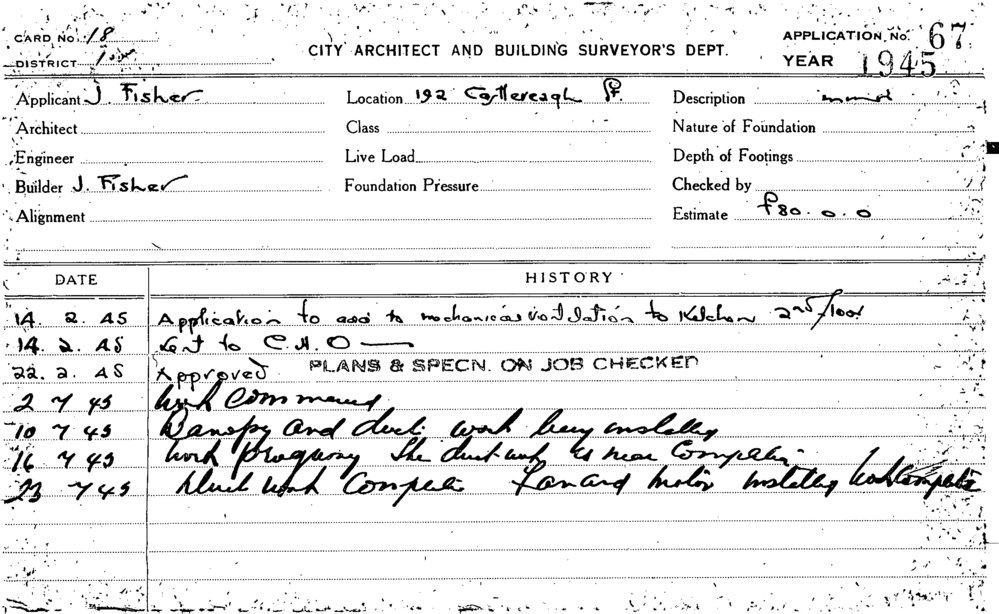 CARD No. 18
APPLICATION No. 67
CITY ARCHITECT AND BUILDING SURVEYOR'S DEPT.
DISTRICT
YEAR 1945
Applicant J. Fisher Location 192 Castlereagh St. Description
Architect Class Nature of Foundation
Engineer Live Load Depth of Footings
Builder J. Fisher Foundation Pressure Checked by
Alignment Estimate £80. 0. 0
DATE HISTORY
14. 2. 45 Application to add to mechanical ventilation to Kitchen 2nd floor
14. 2. 45 Sent to C.H.O —
22. 2. 45 Approved PLANS & SPECN. ON JOB CHECKED
2 7 45 Work Commenced
10 7 45 Canopy and duct work being installed
16 7 45 Work progressing The duct work is near Completion
23 7 45 Duct work Complete Fan and motor installed Work Complete